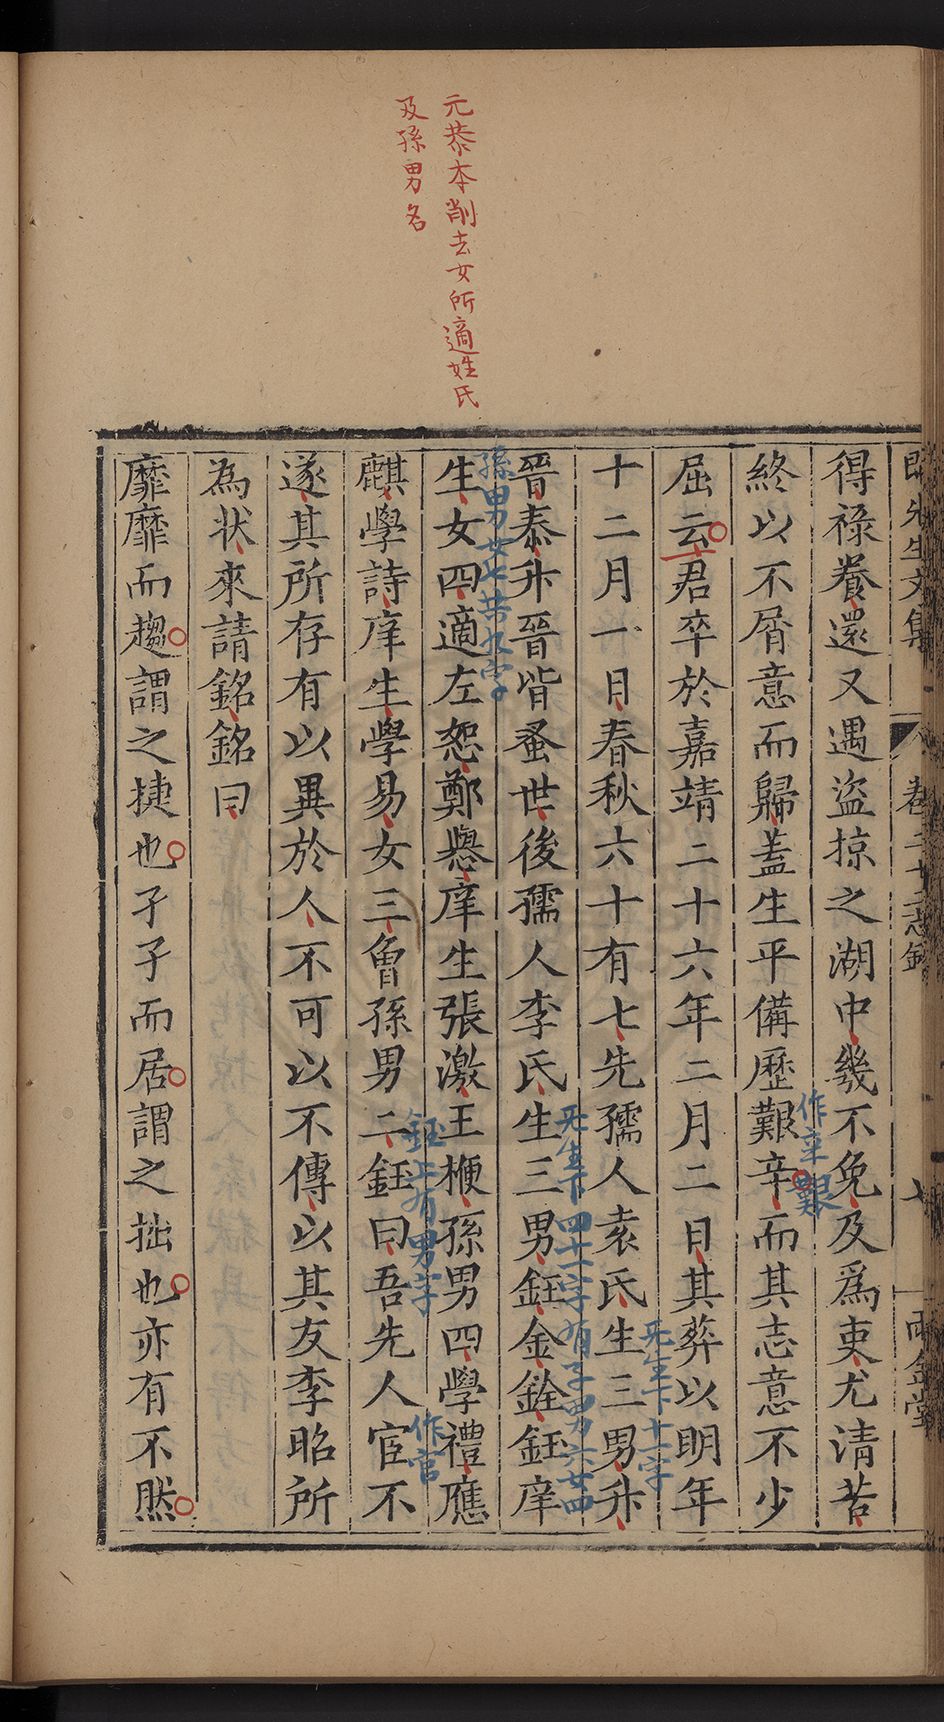 元恭本削去女所適姓氏
及孫男名
先生文集 卷二十 七 兩金堂
得祿養還又遇盜掠之湖中幾不免及爲吏尤清苦
終以不屑意而歸蓋生平備歷艱辛而其志意不少
作辛艱
屈云君卒於嘉靖二十六年二月二日其葬以明年
十二月一日春秋六十有七先孺人袁氏生三男升
先生下十一字
晉泰升晉皆蚤世後孺人李氏生三男鈺金銓鈺庠
先生下四十一字有子男六女四
孫男女七共九字
生女四適左恕鄭譽庠生張激王梗孫男四學禮應
麒學詩庠生學易女三魯孫男二鈺曰吾先人宦不
鈺上有男字
作官
遂其所存有以異於人不可以不傳以其友李昭所
為狀來請銘銘曰
靡靡而趨謂之捷也孑孑而居謂之拙也亦有不然